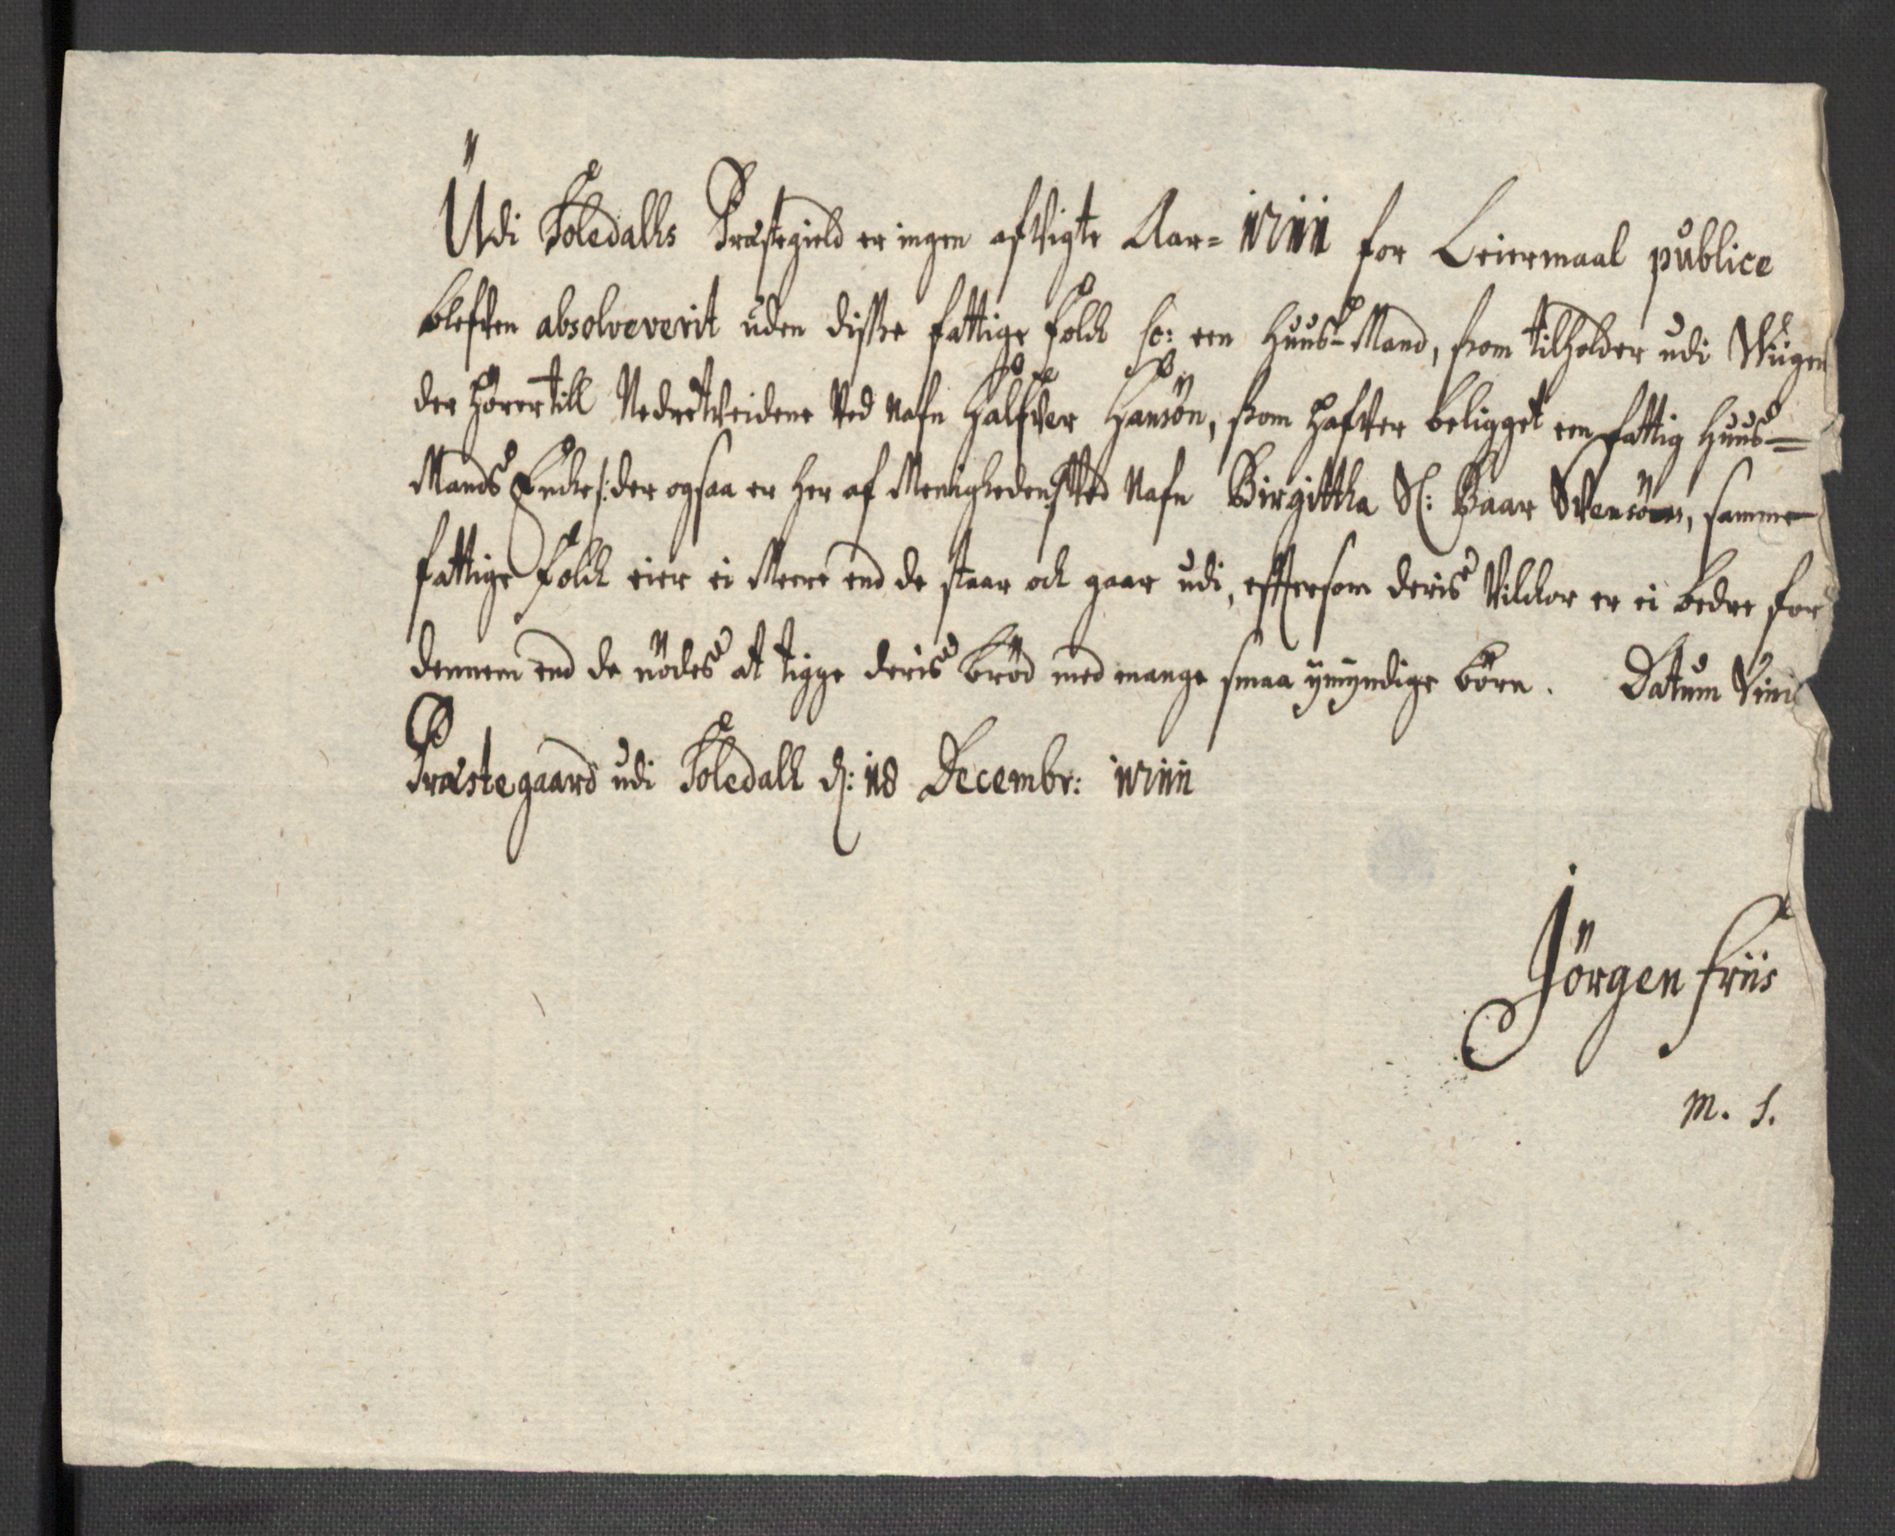 Udi Foledalls Præstegield er ingen afvigte Aar= 1711 for Leiermaal publice
blefven absolveverit uden disse fattige folck sc: een Huus-Mand, som tilholder udi
der hörer till Nedretveidene Ved Nafn Halfver Hansön, som hafver beligget een fattig Huus=
Mands Encke /: der ogsaa er her af Menigheden :/ Ved Nafn Birgittha Sl: Baar Svensöns, samme
fattige folck eier ei Meere end de staar och gaar udi, effersom deris Vilckor er ei bedre for
dennem end de nödes at tigge deris bröd med mange smaa ymyndige börn. Datum Vini
Præstegaard udi Foledall d: 18 Decembr: 1711
Jörgen friis
m. s.